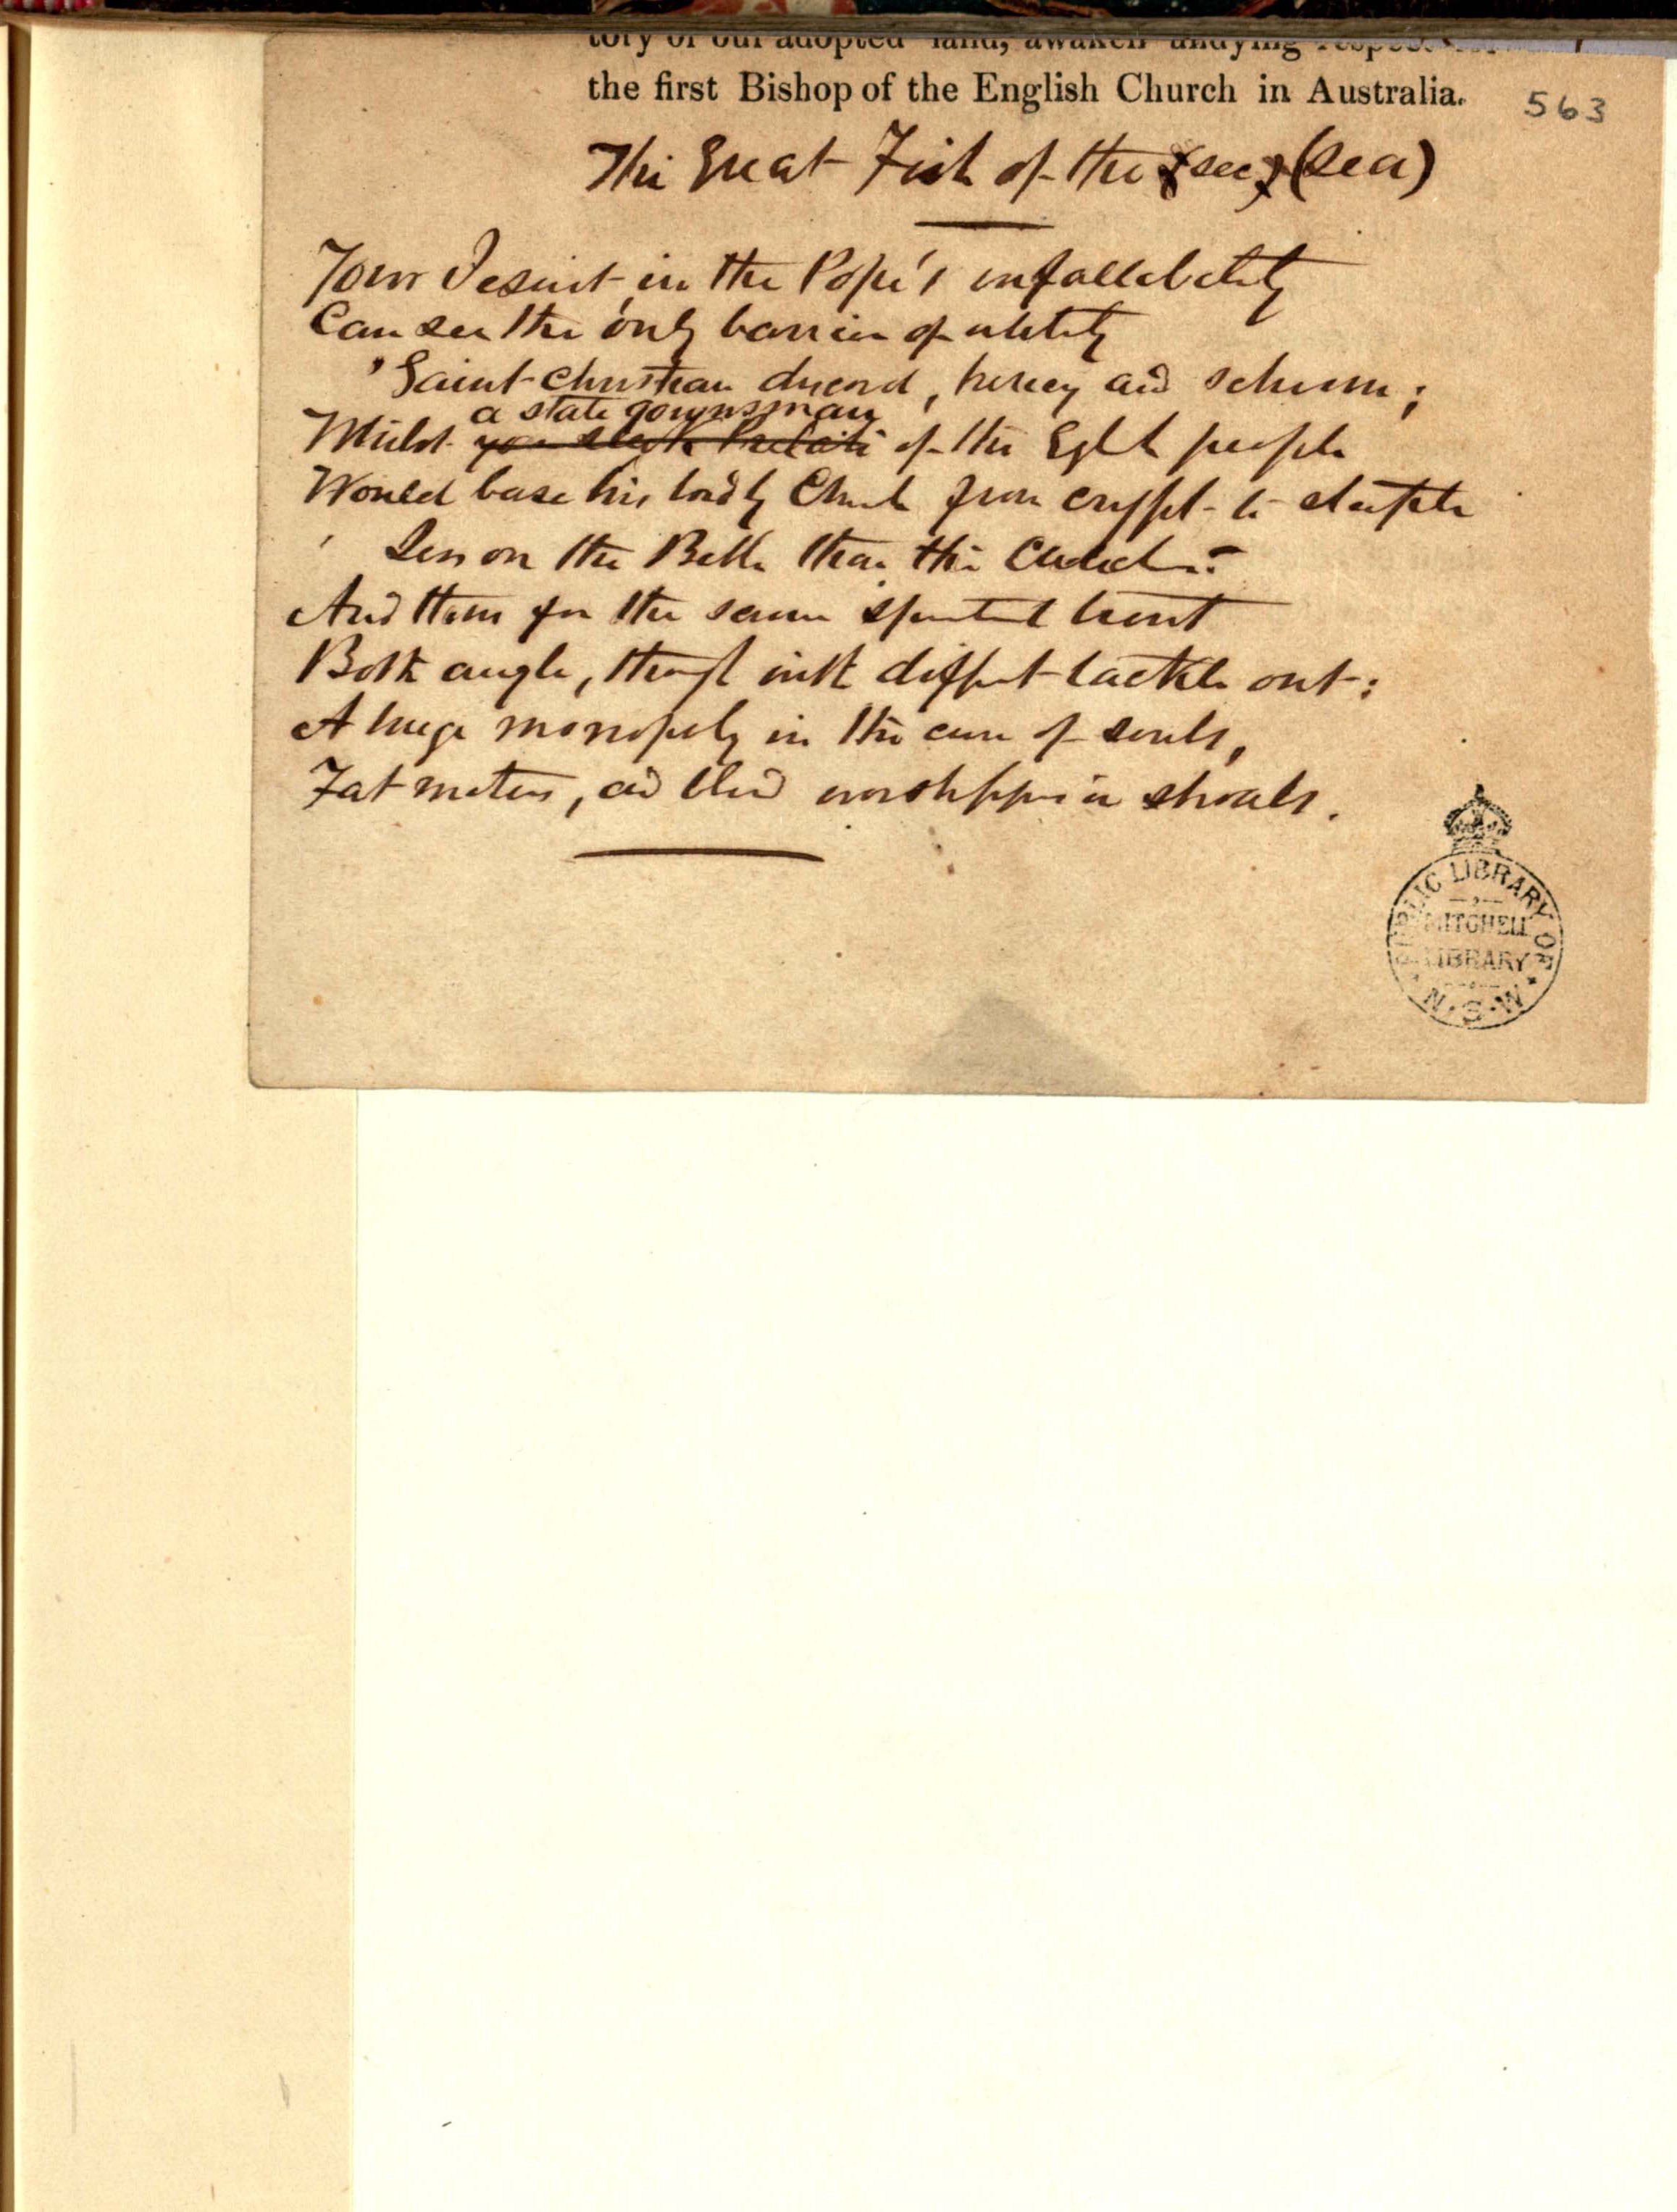 tory of our adopted land, awaken undying respect
the first Bishop of the English Church in Australia.
563
The Great Fish of the see, (Sea)
Your Jesuit in the Pope's infallibility
Can see the only barrier of utility
'Gainst Christian discord, heresy and schism;
a state gownsman
Whilst you sleek Prelate of the Eglh people
Would base his lordly Church from crypt to steeple
Less on the Bible than the
And then for the same spiritual trout
Both angle, though with diffent tackle out:
A huge monopoly in the cure of souls,
Fat meters, and blind worshippers in shoals.
PUBLIC LIBRARY OF
MITCHELL
LIBRARY
N.S.W